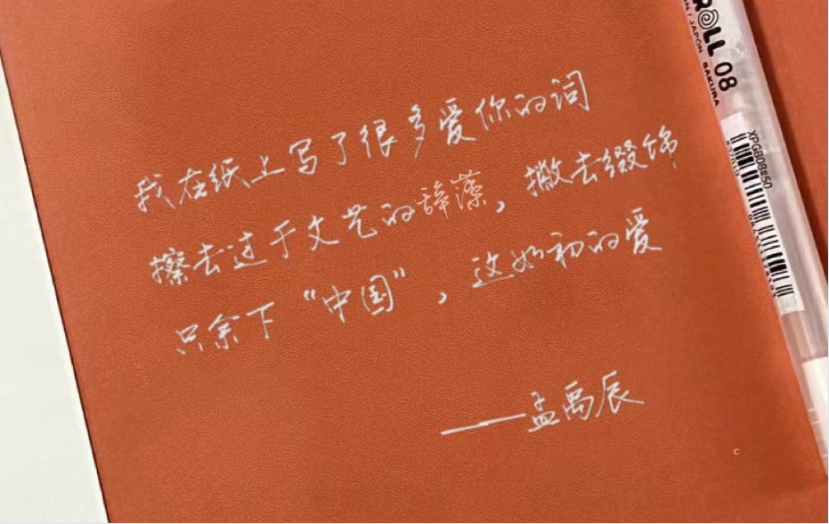 我在纸上写了很多爱你的词
擦去过于文艺的辞藻，撇去缀饰
只余下“中国”，这如初的爱
——孟禹辰
ROLL 08
JAPON SAKURA
XPGB08#50
c